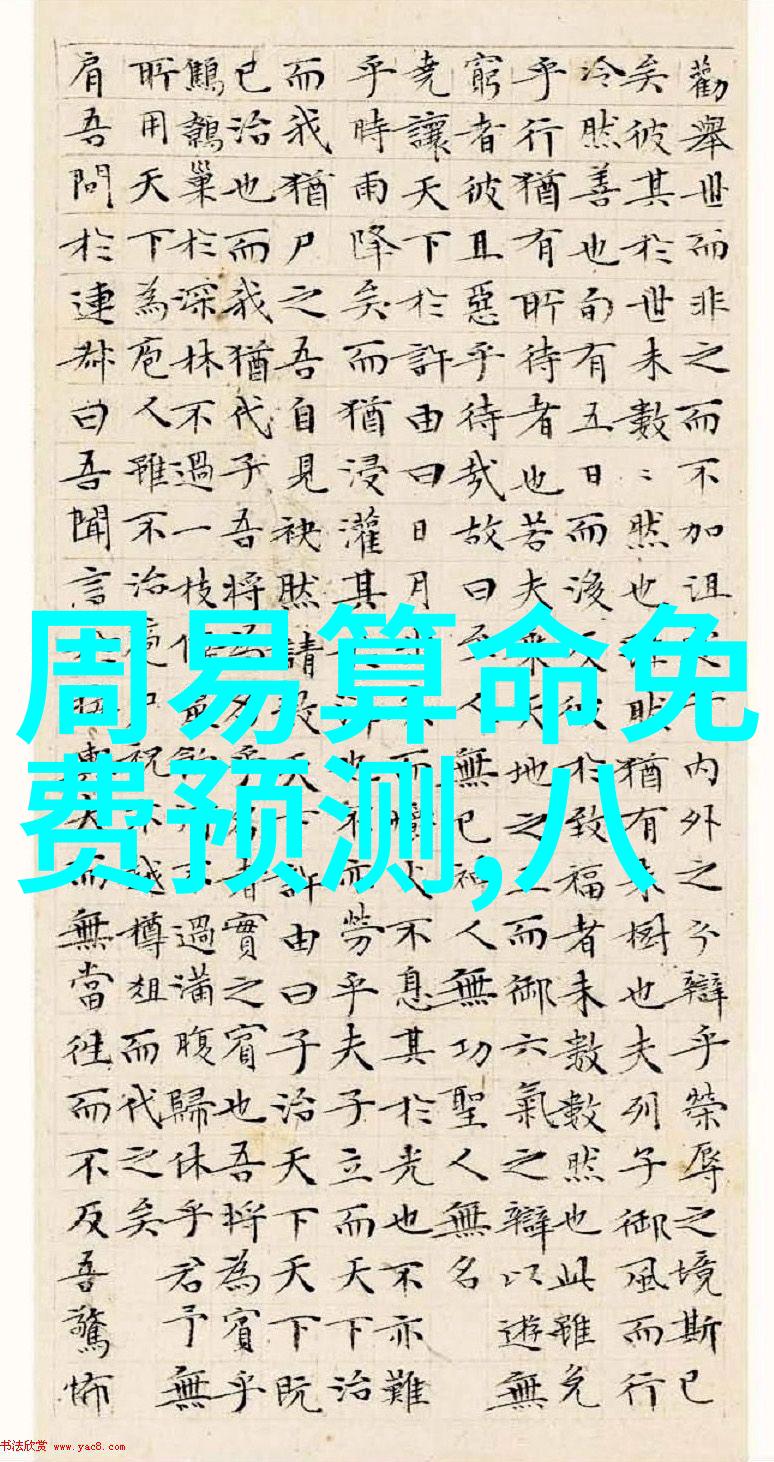 勸舉世而非之而不加沮內外之分辯乎榮辱之境斯已
矣彼其於世未數〻然也然猶有未樹也夫列子御風而行
泠然善也旬有五日而後反彼於致福者未數數然也此雖免
乎行猶有所待者也若夫乘天地之而御六氣之辯以遊無
窮者彼且惡乎待哉故曰至人無已神人無功聖人無名
堯讓天下於許由曰日月而火不息其於光也不亦難
乎時雨降矣而猶浸灌其也不亦勞乎夫子立而天下治
而我猶尸之吾自見袂然請致天下許由曰子治天下天下既
已治也而我猶代子吾將為名乎名者實之賓也吾將為賓乎
鷦鷯巢於深林不過一枝不過滿腹歸休乎君予無
所用天下為庖人雖不治庖尸祝不越樽俎而代之矣
肩吾問於連叔曰吾聞言大而無當往而不反吾驚怖
周易算命免
费预测,八
书法欣赏 www.yac8.com